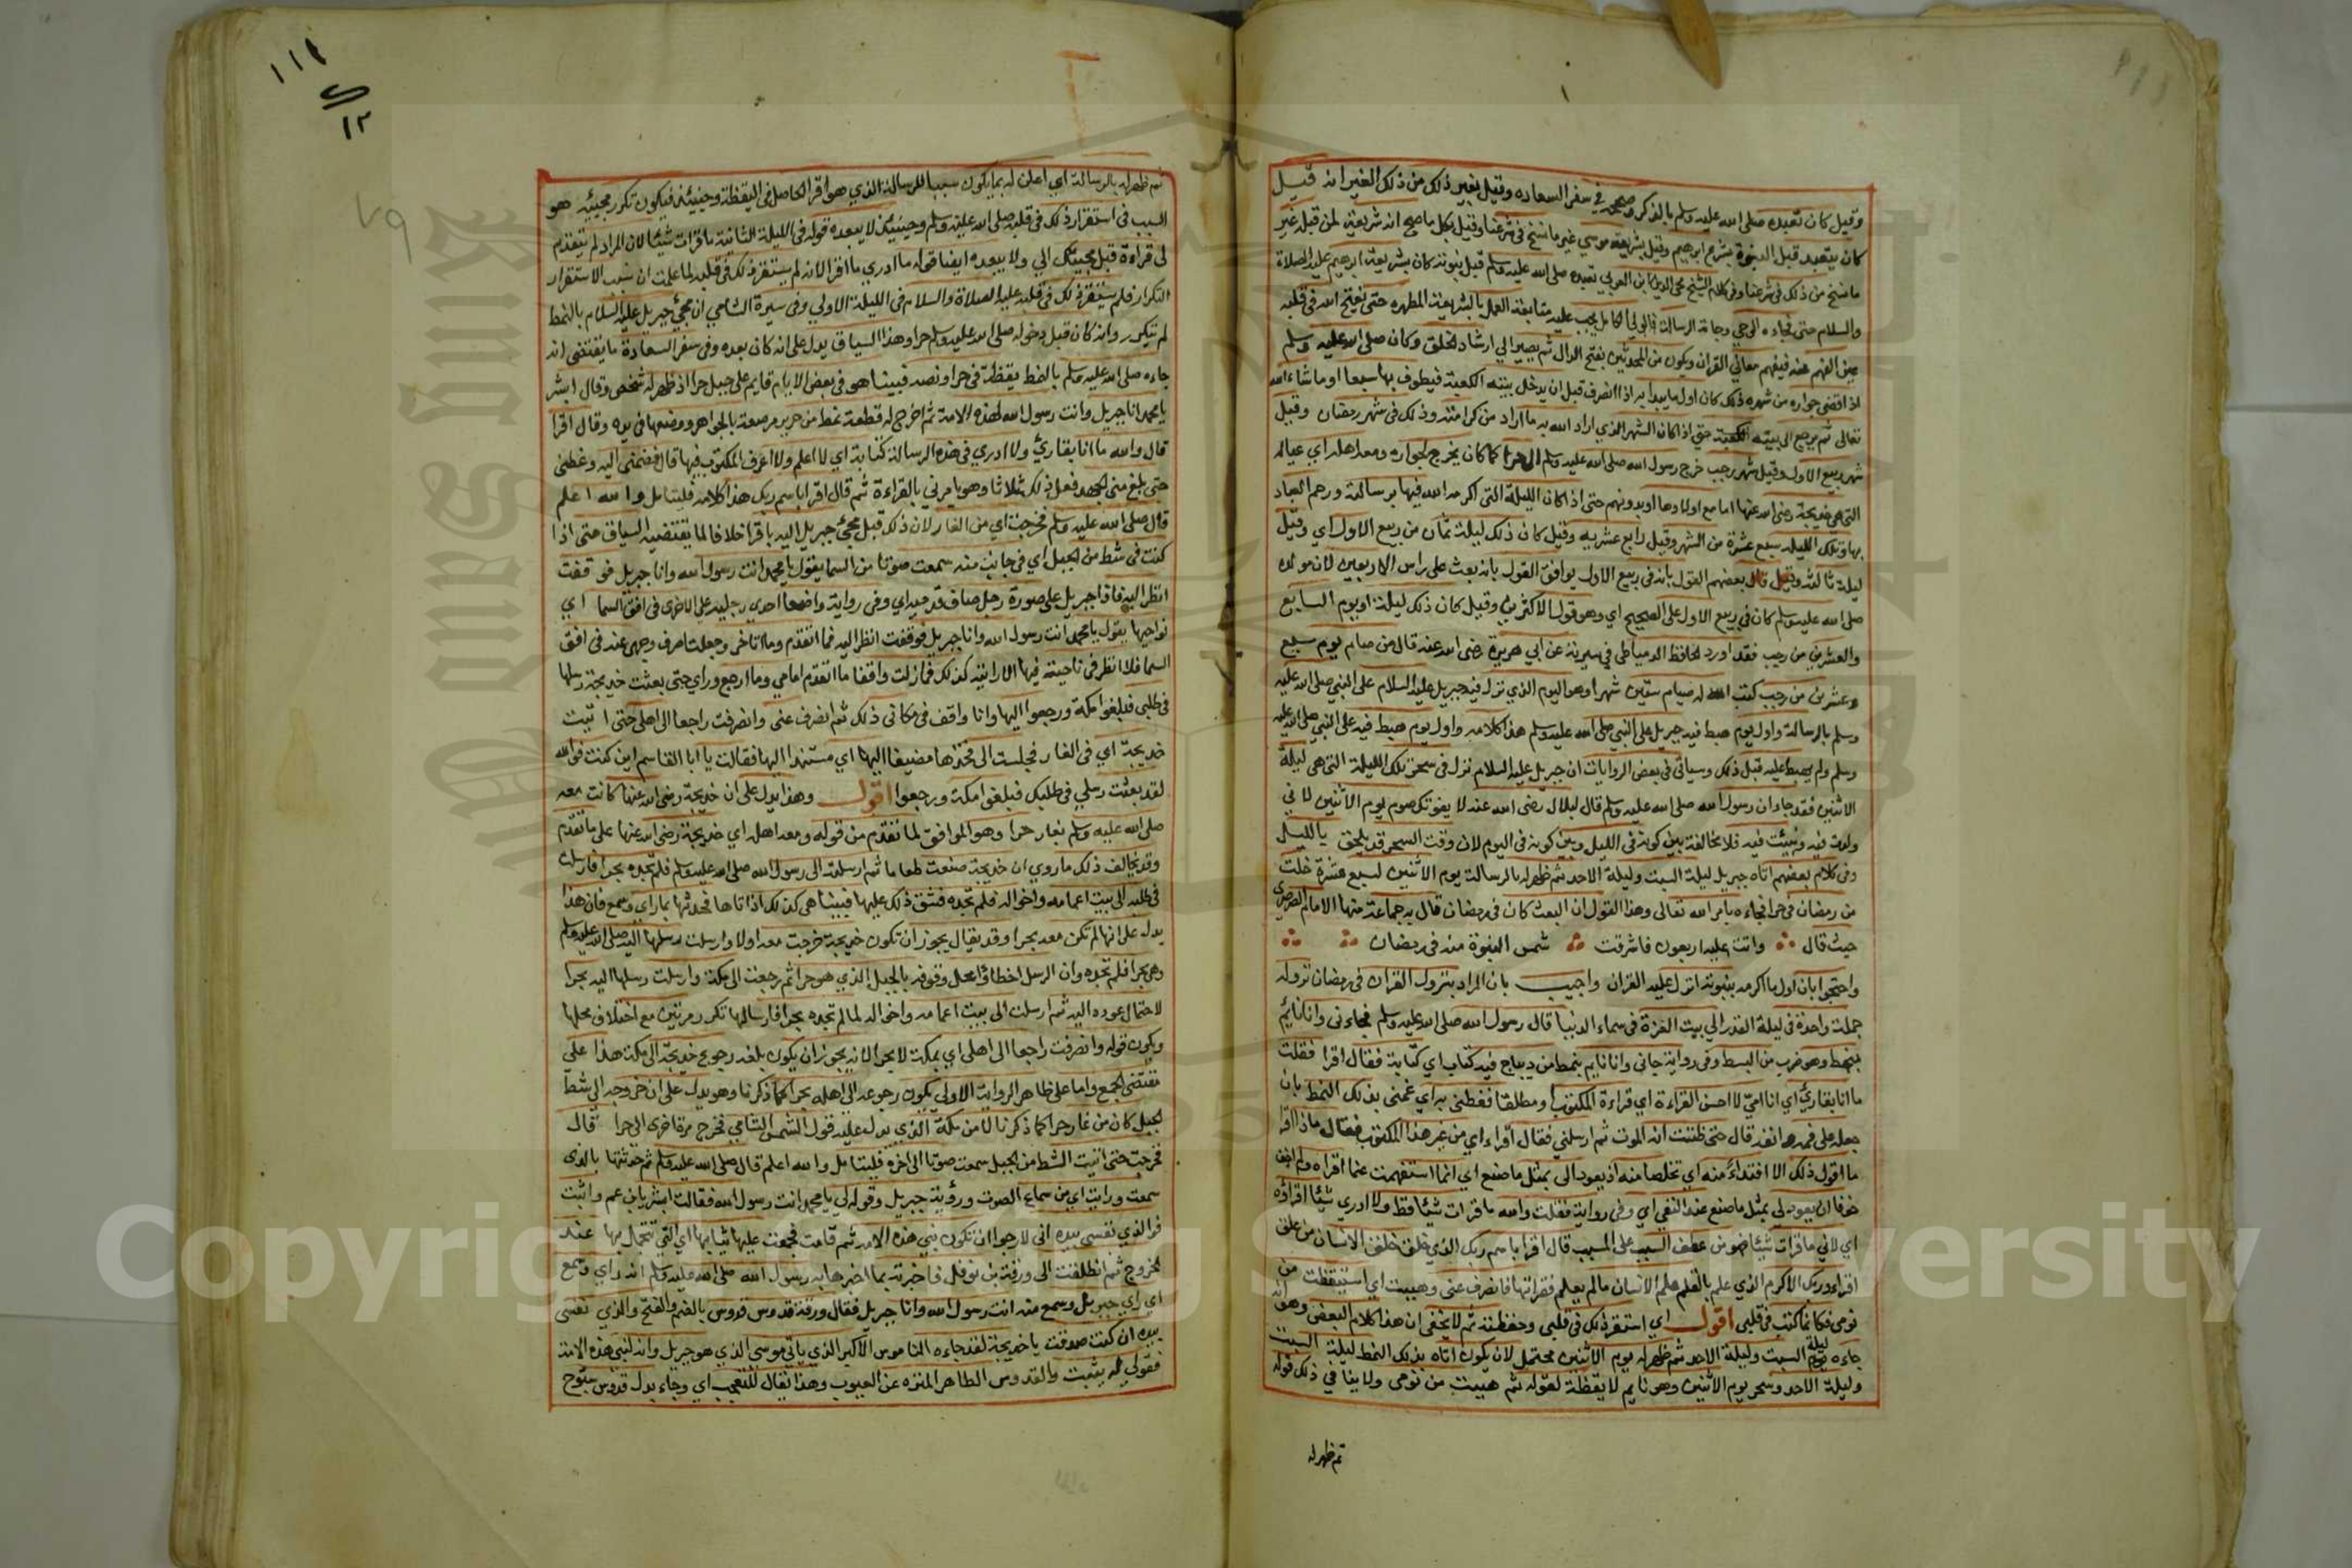 وقيل كان تعبده صلى الله عليه وسلم بالذكر وصححه في سفر السعاده وقيل بغير ذلك من ذلك الغير انه قيل
كان يتعبد قبل النبوة بشرع ابراهيم وقيل بشريعة موسي غير ما نسخ في شرعنا وقيل بكل ما صح انه شريعة لمن قبله غير
ما نسخ من ذلك في شرعنا وفي كلام الشيخ محي الدين ابن العربي تعبده صلى الله عليه وسلم قبل نبوته كان بشريعة ابراهيم عليه الصلاة
والسلام حتى فجاءه الوحي وجاءته الرسالة فالولي الكامل يجب عليه متابعة العمل بالشريعة المطهره حتى يفتح الله في قلبه
عين الفهم عنه فيفهم معاني القران ويكون من المحدثين بفتح الدال ثم يصير الي ارشاد الخلق وكان صلى الله عليه وسلم
اذا قضى جواره من شهره ذلك كان اول ما يبدا به اذا انصرف قبل ان يدخل بيته الكعبة فيطوف بها سبعا او ما شاء الله
تعالى ثم يرجع الى بيته حتى اذا كان الشهر الذي اراد الله به ما اراد من كرامته وذلك في شهر رمضان وقيل
شهر ربيع الاول وقيل شهر رجب خرج رسول الله صلى الله عليه وسلم الى حرا كما كان يخرج لجواره ومعه اهله اي عياله
التي هي خديجة رضي الله عنها اما مع اولادها او بدونهم حتى اذا كان الليلة التي اكرمه الله فيها برسالته ورحم العباد
بها وتلك الليلة سبع عشرة من الشهر وقيل رابع عشريه وقيل كان ذلك ليلة ثمان من ربيع الاول اي وقيل
ليلة ثالثه قال بعضهم القول بانه في ربيع الاول يوافق القول بانه بعث على راس الاربعين لان مولده
صلى الله عليه وسلم كان في ربيع الاول على الصحيح اي وهو قول الاكثرين وقيل كان ذلك ليلة او يوم السابع
والعشرين من رجب فقد اورد الحافظ الدمياطي في سيرته عن ابي هريرة رضى الله عنه قال من صام يوم سبع
وعشرين من رجب كتب الله له صيام ستين شهرا وهو اليوم الذي نزل فيه جبريل عليه السلام على النبي صلى الله عليه
وسلم بالرسالة واول يوم هبط فيه جبريل على النبي صلى الله عليه وسلم هذا كلامه واول يوم هبط فيه على النبي صلى الله عليه
وسلم ولم يهبط عليه قبل ذلك وسياتي في بعض الروايات ان جبريل عليه السلام نزل في سحر تلك الليلة التي هي ليلة
الاثنين فقد جاء ان رسول الله صلى الله عليه وسلم قال لبلال رضى الله عنه لا يفوتك صوم يوم الاثنين فاني
ولدت فيه ونبئت فيه فلا مخالفة بين كونه في الليل وبين كونه في اليوم لان وقت السحر قد يلحق بالليل
وفي كلام بعضهم اتاه جبريل ليلة السبت وليلة الاحد ثم ظهر له بالرسالة يوم الاثنين لسبع عشرة خلت
من رمضان في حرا فجاءه بامر الله تعالى وهذا القول ان البعث كان في رمضان قال به جماعة منها الامام الصرصري
حيث قال واتت عليه اربعون فاشرقت شمس النبوة منه في رمضان
واحتجوا بان اول ما اكرمه بنبوته انزل عليه القران واجيب بان المراد بنزول القران في رمضان نزوله
جملة واحدة في ليلة القدر الي بيت العزة في سماء الدنيا قال رسول الله صلى الله عليه وسلم فجاءني وانا نائم
بنمط وهو ضرب من البسط وفي رواية جاني وانا نايم بنمط من ديباج فيه كتاب اي كتابة فقال اقرا فقلت
ما انا بقاري اي انا امي لا احسن القراءة اي قراءة المكتوب او مطلقا فغطني به اي غمني بذلك النمط بان
جعله على فمه وانفه قال حتى ظننت انه الموت ثم ارسلني فقال اقراء اي من غير هذا المكتوب فقال ماذا اقرا
ما اقول ذلك الا افتداء منه اي تخلصا منه ان يعود الى بمثل ما صنع اي انما استفهمت عما اقراه ولم انف
خوفا ان يعود لي بمثل ما صنع عند النفي اي وفي رواية فقلت والله ما قرات شيئا قط ولا ادري شيئا اقراؤه
اي لاني ما قرات شيئا فهو من عطف السبب على المسبب قال اقرا باسم ربك الذي خلق خلق الانسان من علق
اقراء وربك الاكرم الذي علم بالقلم علم الانسان ما لم يعلم فقراتها فانصرف عني وهببت اي استيقظت من
نومي فكانما كتب في قلبي اقول اي استقر ذلك في قلبي وحفظته ثم لا يخفى ان هذا كلام البعض وهو انه
جاءه ليلة السبت وليلة الاحد ثم ظهر له يوم الاثنين محتمل لان يكون اتاه بذلك النمط ليلة السبت
وليلة الاحد وسحر يوم الاثنين وهو نايم لا يقظة لقوله ثم هببت من نومي ولا ينافي ذلك قوله
ثم ظهر له
١١٨
١٢
٧٩
ثم ظهر له بالرسالة اي اعلن له بما يكون سببا للرسالة الذي هو اقرا الحاصل في اليقظة وحينيئذ فيكون تكرر مجيئه هو
السبب في استقرار ذلك في قلبه صلى الله عليه وسلم وحينيئذ لا يبعده قوله في الليلة الثانية ما قرات شيئا لان المراد لم يتقدم
لي قراءة قبل مجيئك الي ولا يبعده ايضا قوله ما ادري ما اقرا لانه لم يستقر ذلك في قلبه لما علمت ان سبب الاستقرار
التكرار فلم يستقر ذلك في قلبه عليه الصلاة والسلام في الليلة الاولي وفي سيرة الشامي ان مجيء جبريل عليه السلام بالنمط
لم يتكرر وانه كان قبل دخوله صلى الله عليه وسلم حرا وهذا السياق يدل على انه كان بعده وفي سفر السعادة ما يقتضي انه
جاءه صلى الله عليه وسلم بالنمط يقظة في حرا ونصه فبينما هو في بعض الايام قايم على جبل حرا اذ ظهر له شخص وقال ابشر
يا محمد انا جبريل وانت رسول الله لهذه الامة ثم اخرج له قطعة نمط من حرير مرصعة بالجواهر ووضعها في يده وقال اقرا
قال والله ما انا بقاري ولا ادري في هذه الرسالة كتابة اي لا اعلم ولا اعرف المكتوب فيها قال فضمني اليه وغطني
حتى بلغ مني الجهد فعل ذلك ثلاثا وهو يامرني بالقراءة ثم قال اقرا باسم ربك هذا كلامه فليتامل والله اعلم
قال صلى الله عليه وسلم فخرجت اي من الغار لان ذلك قبل مجيء جبريل اليه باقرا خلافا لما يقتضيه السياق حتى اذا
كنت في شط من الجبل اي في جانب منه سمعت صوتا من السما يقول يا محمد انت رسول الله وانا جبريل فوقفت
انظر اليه فاذا جبريل على صورة رجل صاف قدميه اي وفي رواية واضعا احدي رجليه على الاخرى في افق السما اي
نواحيها يقول يا محمد انت رسول الله وانا جبريل فوقفت انظر اليه فما اتقدم وما اتاخر وجعلت اصرف وجهي عنه في افق
السما فلا انظر في ناحية فيها الا رايته كذلك فما زلت واقفا ما اتقدم امامي وما ارجع وراي حتى بعثت خديجة رسلها
في طلبي فبلغوا مكة ورجعوا اليها وانا واقف في مكاني ذلك ثم انصرف عني وانصرفت راجعا الى اهلي حتى اتيت
خديجة اي في الغار فجلست الى فخذها مضيفا اليها اي مستندا اليها فقالت يا ابا القاسم اين كنت فوالله
لقد بعثت رسلي في طلبك فبلغوا مكة ورجعوا اقول وهذا يدل على ان خديجة رضى الله عنها كانت معه
صلى الله عليه وسلم بغار حرا وهو الموافق لما تقدم من قوله ومعه اهله اي خديجة رضى الله عنها على ما تقدم
وقد يخالف ذلك ما روي ان خديجة صنعت طعاما ثم ارسلته الى رسول الله صلى الله عليه وسلم فلم تجده بحرا فارسلت
في طلبه الى بيت اعمامه واخواله فلم تجده فشق ذلك عليها فبينما هي كذلك اذ اتاها فحدثها بما راي وسمع فان هذا
يدل على انها لم تكن معه بحرا وقد يقال يجوز ان تكون خديجة خرجت معه اولا وارسلت رسلها اليه صلى الله عليه وسلم
وهي بحرا فلم تجده وان الرسل اخطاؤا محل وقوفه بالجبل الذي هو حرا ثم رجعت الى مكة وارسلت رسلها اليه بحرا
لاحتمال عوده اليه ثم ارسلت الى بيت اعمامه واخواله لما لم تجده بحرا فارسالها تكرر مرتين مع اختلاف محلها
ويكون قوله وانصرفت راجعا الى اهلي اي بمكة لا بحرا لانه يجوز ان يكون بلغه رجوع خديجة الى مكة هذا علي
مقتضى الجمع واما على ظاهر الرواية الاولى يكون رجوعه الى اهله بحرا كما ذكرنا وهو يدل على ان خروجه الى شط
الجبل كان من غار حرا كما ذكرنا لا من مكة الذي يدل عليه قول الشمس الشامي فخرج مرة اخرى الى حرا قال
فخرجت حتى اتيت الشط من الجبل سمعت صوتا الى اخره فليتامل والله اعلم قال صلى الله عليه وسلم ثم حدثتها بالذي
سمعت ورايت اي من سماع الصوت ورؤية جبريل وقوله لي يا محمد انت رسول الله فقالت ابشر يا بن عم واثبت
فوالذي نفسي بيده اني لارجوا ان تكون نبي هذه الامة ثم قامت فجمعت عليها ثيابها اي التي تتجمل بها عند
الخروج ثم انطلقت الى ورقة بن نوفل فاخبرته بما اخبرها به رسول الله صلى الله عليه وسلم انه راي وسمع
اي راي جبريل وسمع منه انت رسول الله وانا جبريل فقال ورقة قدوس قدوس بالضم والفتح والذي نفسي
بيده ان كنت صدقت يا خديجة لقد جاءه الناموس الاكبر الذي ياتي موسى الذي هو جبريل وانه لنبي هذه الامة
فقولي له يثبت والقدوس الطاهر المنزه عن العيوب وهذا يقال للتعجب اي وجاء بدل قدوس سبوح
Copyright © King Saud University